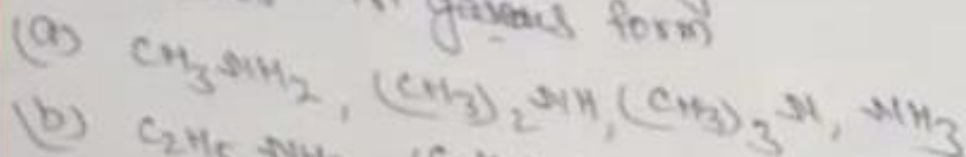 gaseous form
(a) CH3NH2, (CH3)2NH, (CH3)3N, NH3
(b) C2H5